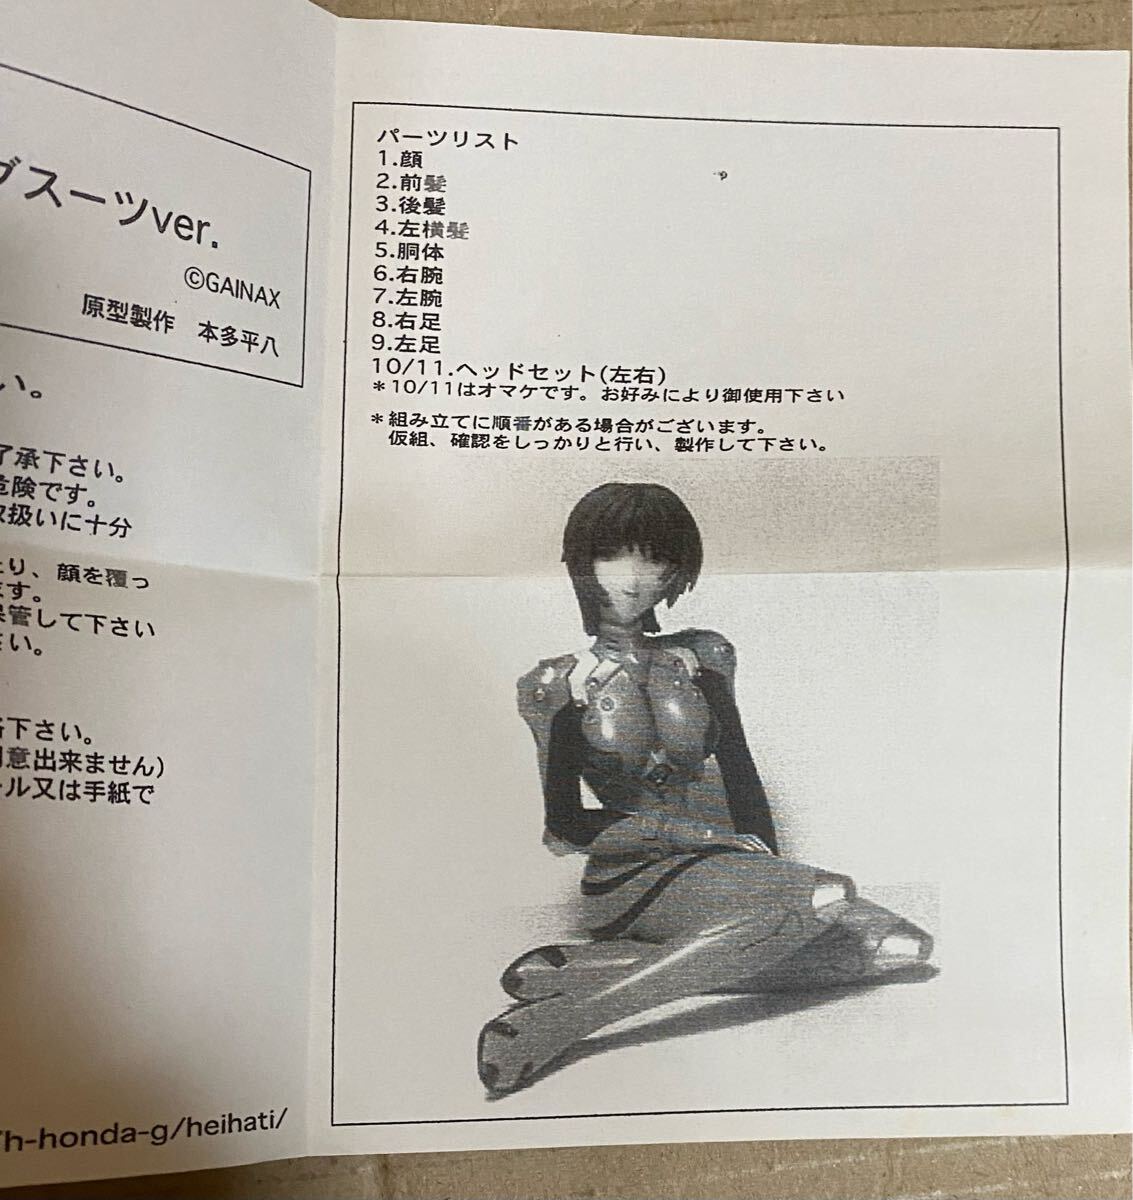 ブスーツver.
©GAINAX
原型製作　本多平八
い。
了承下さい。
危険です。
取扱いに十分
たり、顔を覆っ
ます。
保管して下さい
さい。
絡下さい。
用意出来ません)
ール又は手紙で
h-honda-g/heihati/
パーツリスト
1.顔
2.前髪
3.後髪
4.左横髪
5.胴体
6.右腕
7.左腕
8.右足
9.左足
10/11.ヘッドセット(左右)
*10/11はオマケです。お好みにより御使用下さい
*組み立てに順番がある場合がございます。
仮組、確認をしっかりと行い、製作して下さい。